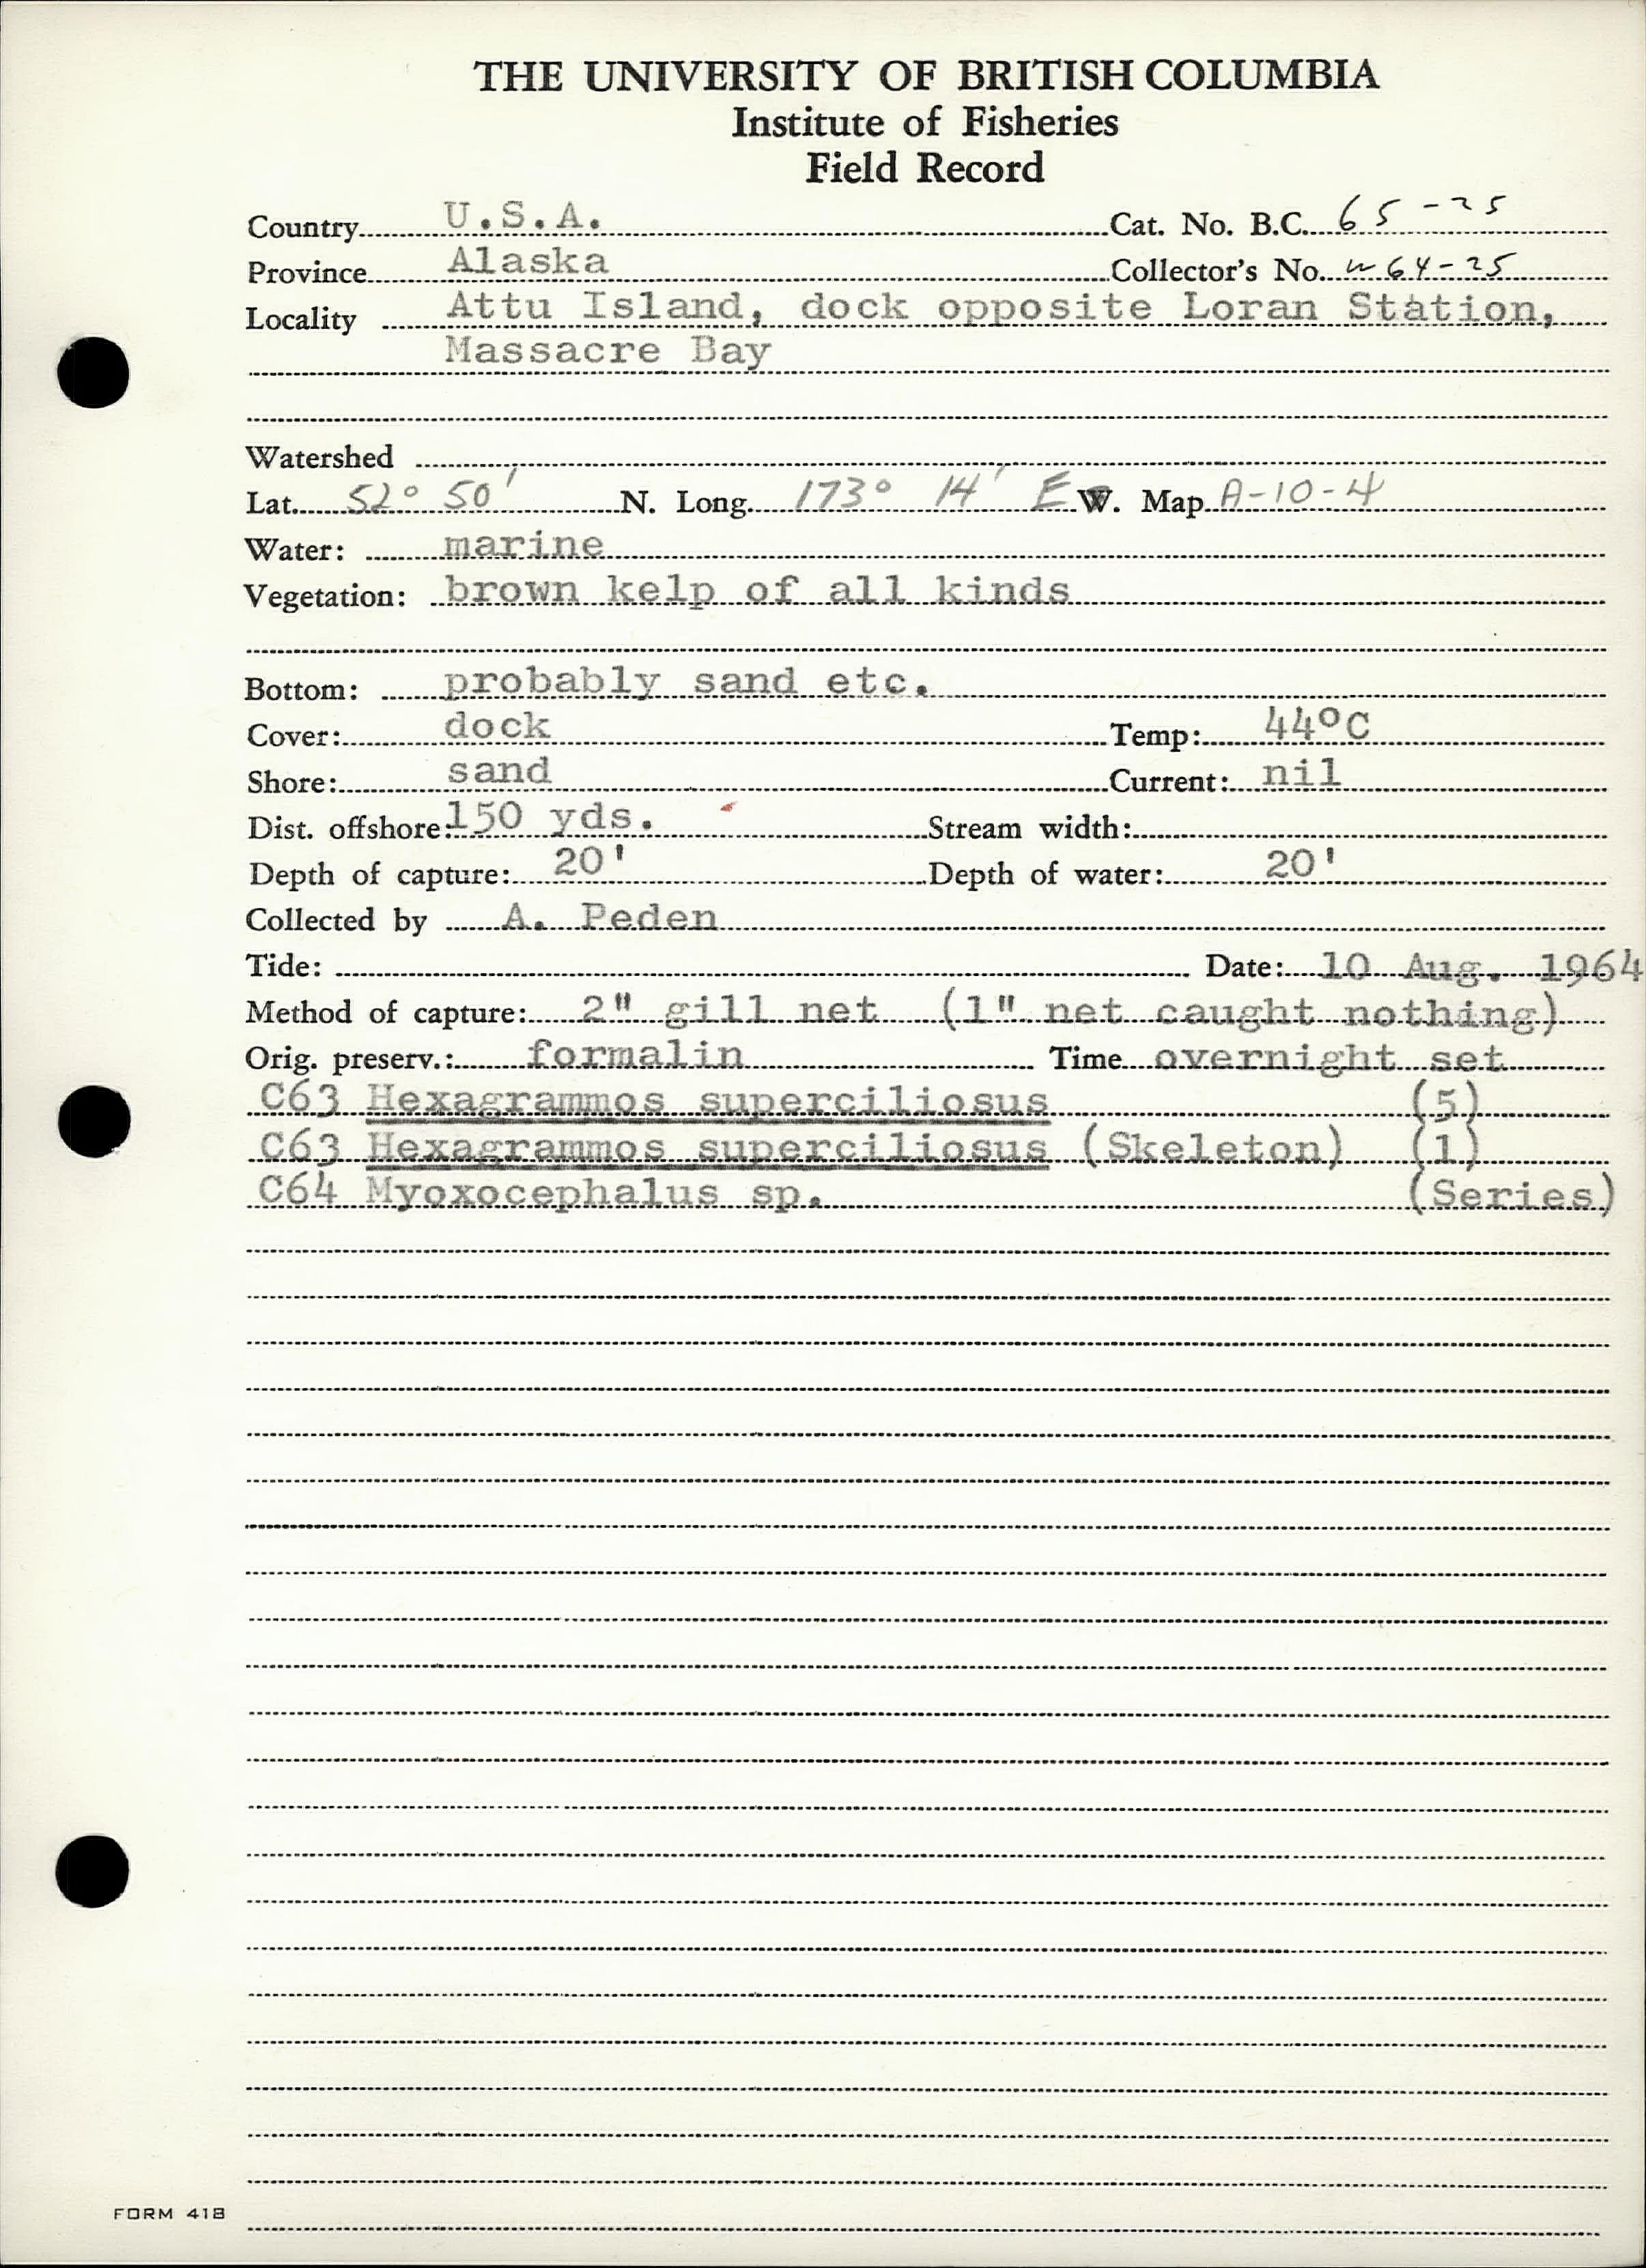 THE UNIVERSITY OF BRITISH COLUMBIA
Institute of Fisheries
Field Record
Country U.S.A. Cat. No. B.C. 65-25
Province Alaska Collector's No. W64-25
Locality Attu Island, dock opposite Loran Station,
Massacre Bay
Watershed
Lat. 52° 50' N. Long. 173° 14' E W. Map A-10-4
Water: marine
Vegetation: brown kelp of all kinds
Bottom: probably sand etc.
Cover: dock Temp: 44°C
Shore: sand Current: nil
Dist. offshore: 150 yds. Stream width:
Depth of capture: 20' Depth of water: 20'
Collected by A. Peden
Tide: Date: 10 Aug. 1964
Method of capture: 2" gill net (1" net caught nothing)
Orig. preserv.: formalin Time overnight set
C63 Hexagrammos superciliosus (5)
C63 Hexagrammos superciliosus (Skeleton) (1)
C64 Myoxocephalus sp. (Series)
FORM 41B